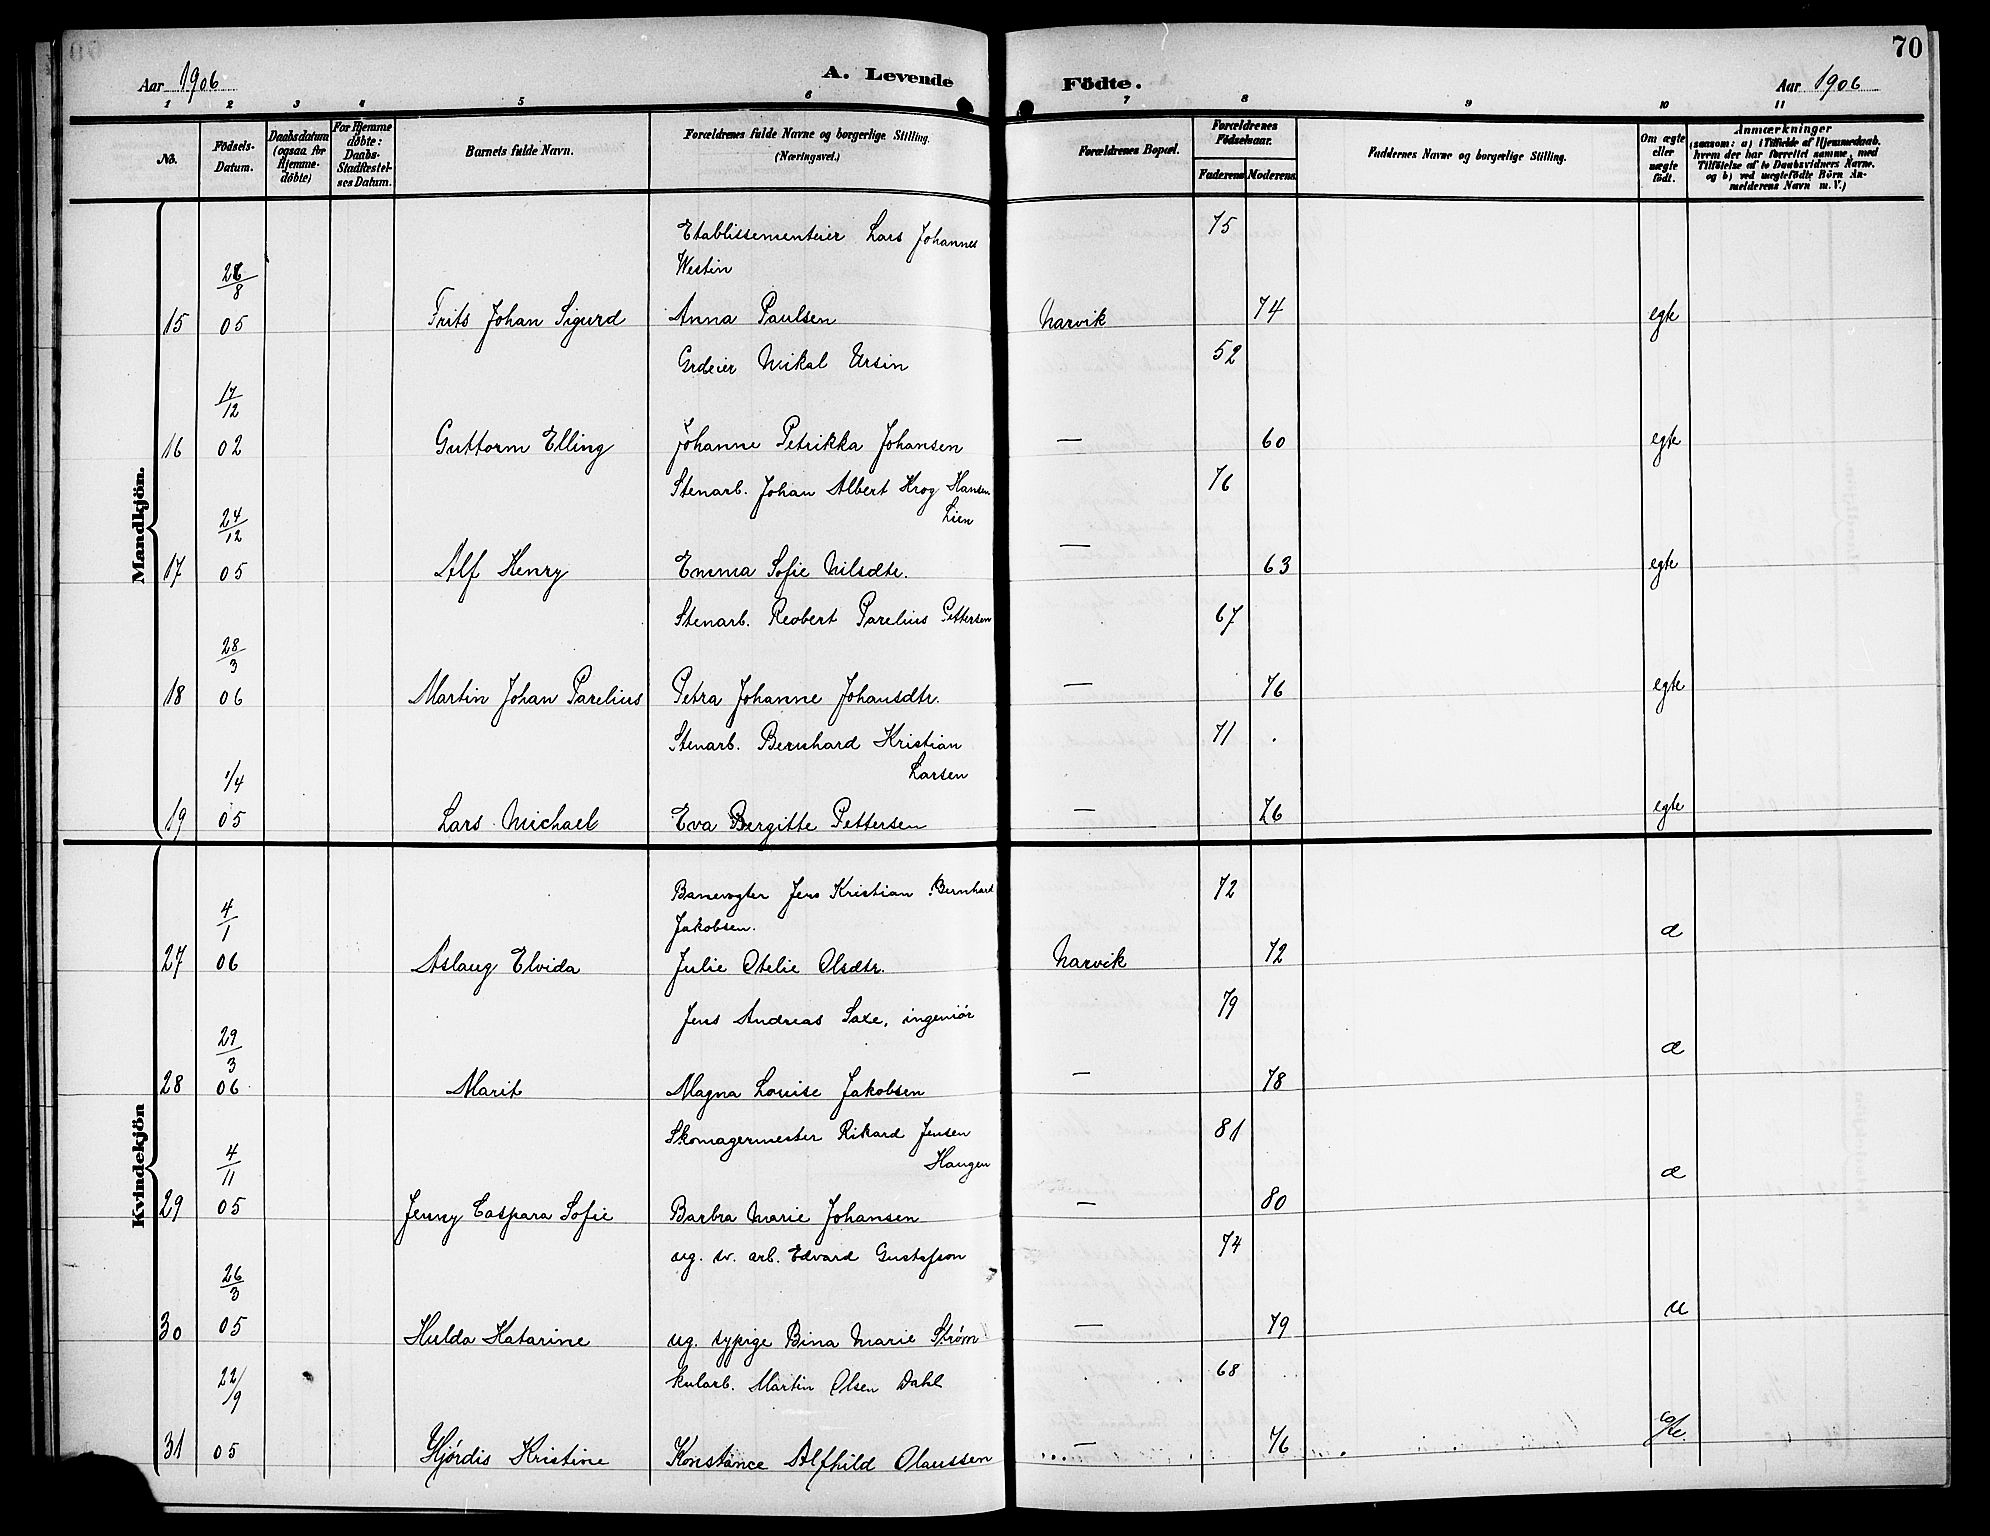 70
Aar 1906
A. Levende Födte.
Aar 1906
1 2 3 4 5 6 7 8 9 10 11
No.
Födsels-Datum.
Daabsdatum (ogsaa for Hjemme-döbte)
For Hjemme döbte: Daabs-Stadfæstelses Datum.
Barnets fulde Navn.
Forældrenes fulde Navne og borgerlige Stilling. (Næringsvei.)
Forældrenes Bopæl.
Forældrenes Födselsaar.
Faderens Moderens
Faddernes Navne og borgerlige Stilling.
Om ægte eller uægte födt.
Anmærkninger
(saasom: a) i Tilfælde af Hjemmedaab, hvem der har forrettet samme, med Tilföielse af to Daabsvidners Navne. og b) ved uegtefödte Börn Anmelderens Navn m. V.)
Mandkjön.
Etablissementeier Lars Johannes 75
Westin
26/8
15 05 Frits Johan Sigurd Anna Paulsen Narvik 74 egte
Grdeier Mikal Ursin 52
17/12
16 02 Guttorm Elling Johanne Petrikka Johansen — 60 egte
Stenarb. Johan Albert Krog Hansen 76
24/12 Lien
17 05 Alf Henry Emma Sofie Nilsdtr. — 63 egte
Stenarb. Reobert Parelius Pettersen 67
28/3
18 06 Martin Johan Parelius Petra Johanne Johansdtr. — 76 egte
Stenarb. Bernhard Kristian 71
1/4 Larsen
19 05 Lars Michael Eva Bergitte Pettersen — 76 egte
Kvindekjön
Banevogter Jens Kristian Bernhard 72
4/1 Jakobsen.
27 06 Aslaug Elvida Julie Otelie Olsdtr. Narvik 72 æ
Jens Andreas Saxe, ingeniör 79
29/3
28 06 Marit Magna Louise Jakobsen — 78 æ
Skomagermester Rikard Jensen 81
4/11 Haugen
29 05 Jenny Caspara Sofie Barbra Marie Johansen — 80 æ
ug. sv. arb. Edvard Gustafson 74
26/3
30 05 Hulda Katarine ug. sypige Bina Marie Strøm — 79 u
22/9 kularb. Martin Olsen Dahl 68
31 05 Hjördis Kristine Konstance Alfhild Olaussen — 76 egte